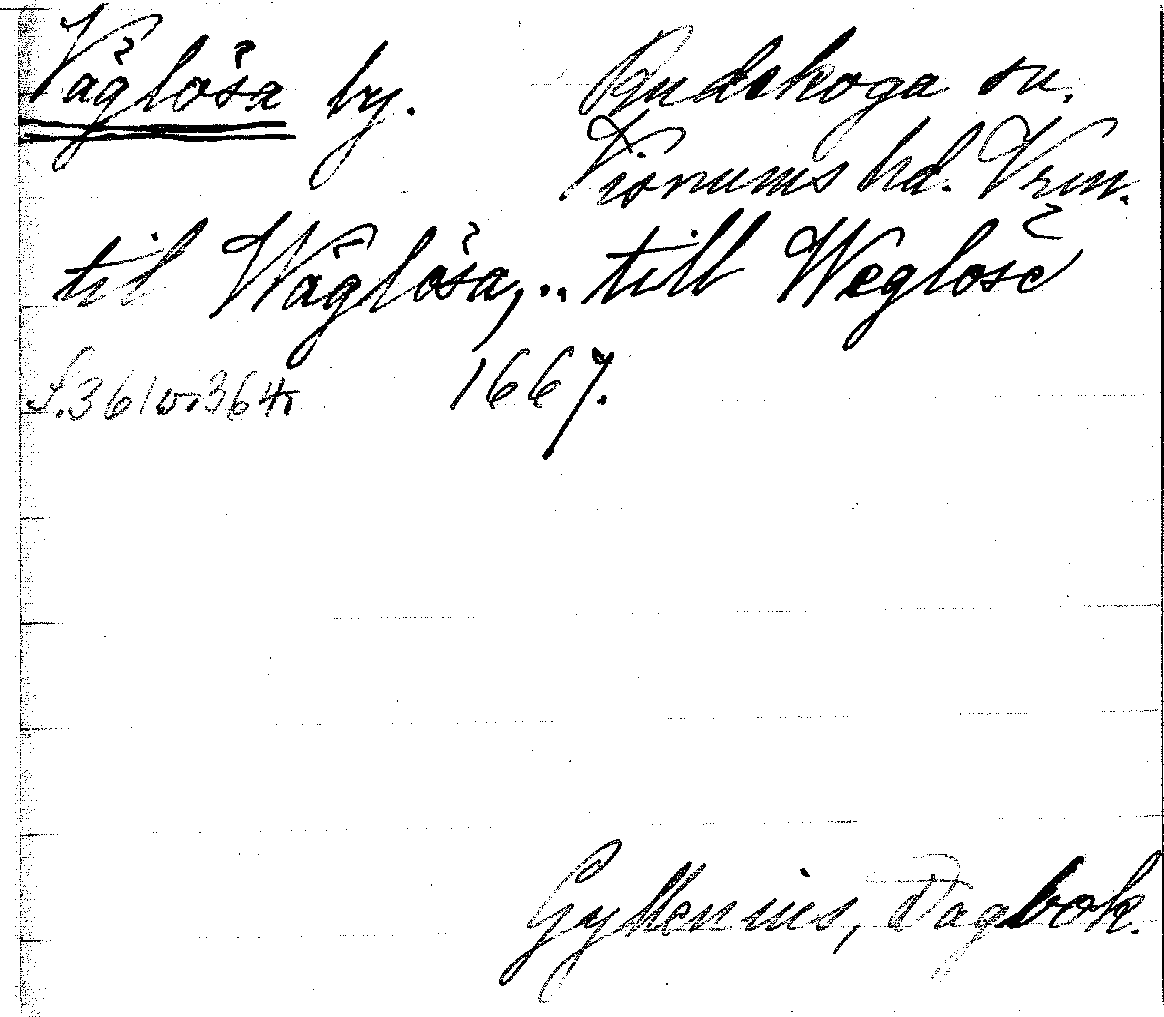 Väglösa by. Rudskoga sn.
Visnums hd. Vrm.
til Wäglösa, .. till Weglöse
S. 361 o. 364. 1667.
Gyllenius, Dagbok.